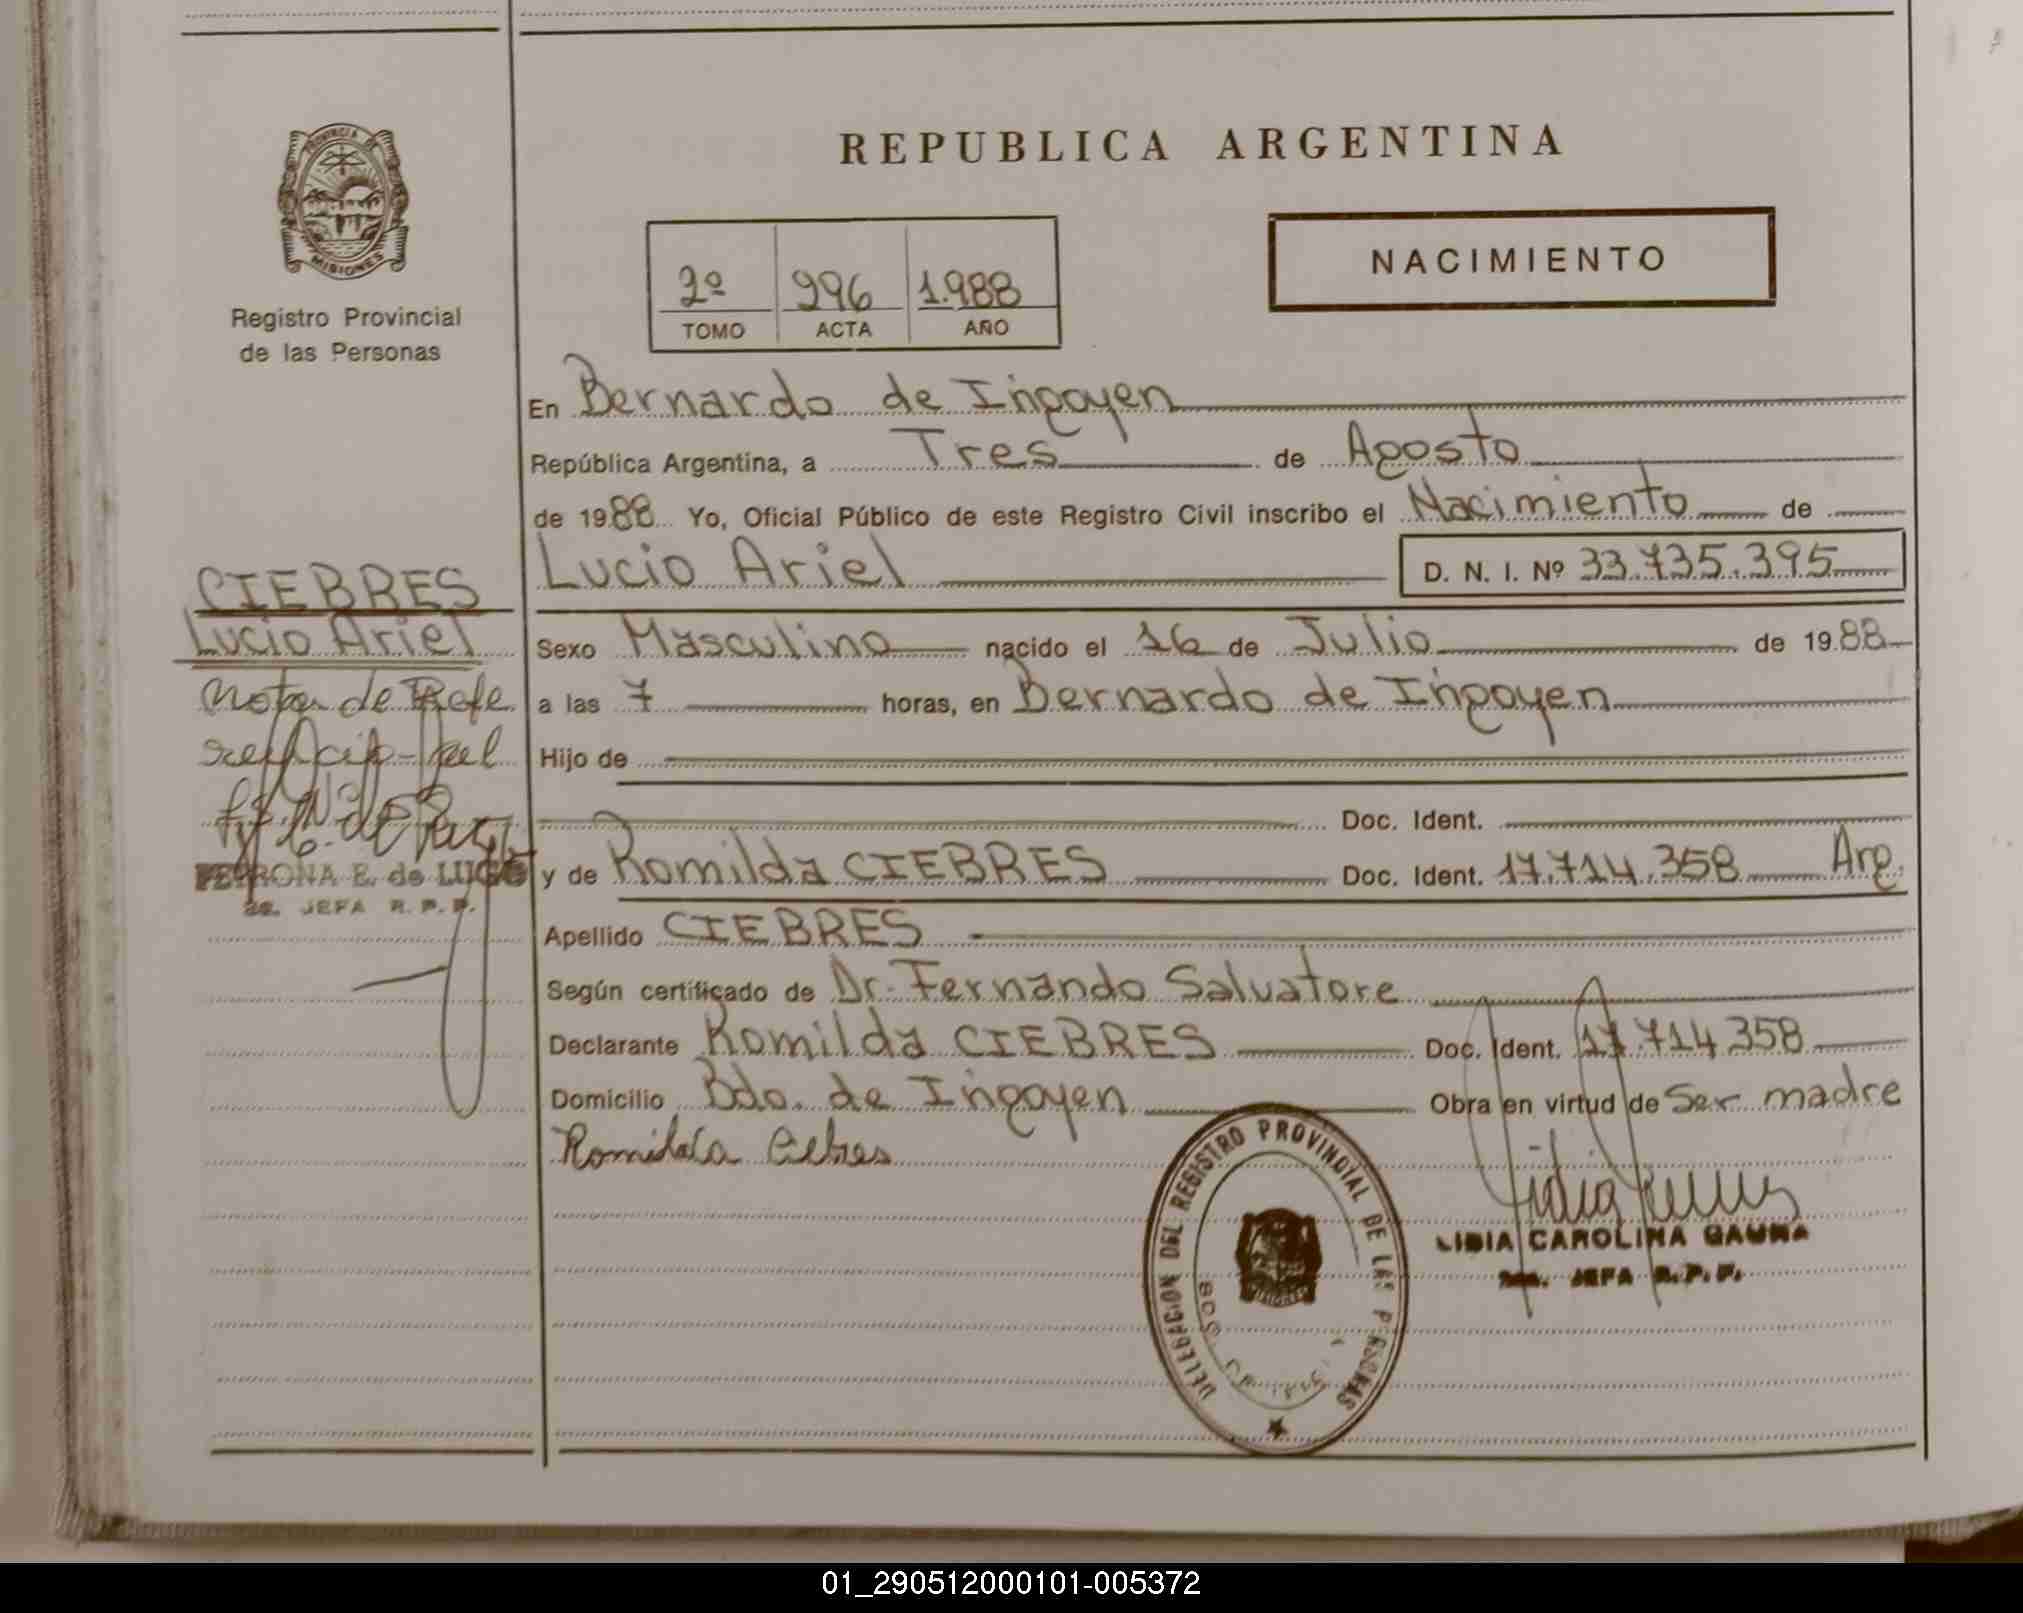 REPUBLICA ARGENTINA
PROVINCIA DE
MISIONES
Registro Provincial
de las Personas
NACIMIENTO
2º 296 1.988
TOMO ACTA AÑO
En Bernardo de Irigoyen
República Argentina, a Tres de Agosto
de 1988 Yo, Oficial Público de este Registro Civil inscribo el Nacimiento de
Lucio Ariel D. N. I. Nº 33.735.395
CIEBRES
Lucio Ariel
Nota de Refe
Sexo Masculino nacido el 16 de Julio de 1988
a las 7 horas, en Bernardo de Irigoyen
Hijo de
Doc. Ident.
y de Romilda CIEBRES Doc. Ident. 17.714.358 Arg.
PETRONA E. de LUGO
JEFA R. P. P.
Apellido CIEBRES
Según certificado de Dr. Fernando Salvatore
Declarante Romilda CIEBRES Doc. Ident. 17.714.358
Domicilio Bdo. de Irigoyen Obra en virtud de Ser madre
Romilda Ciebres
DELEGACION DEL REGISTRO PROVINCIAL DE LAS PERSONAS
LIDIA CAROLINA GAUNA
JEFA R. P. P.
01_290512000101-005372